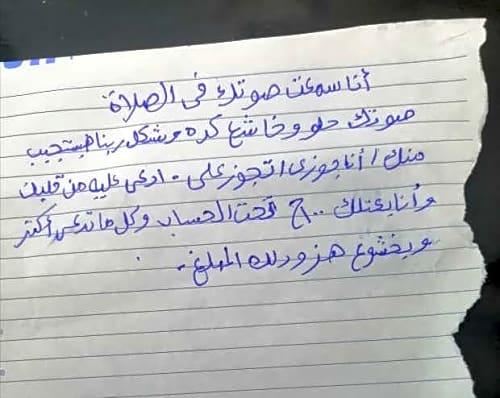 أنا سمعت صوتك في الصلاة
صوتك حلو وخاشع كده وشكل ربنا هيستجيب
منك / أنا جوزى اتجوز على . ادعى عليه من قلبك
وأنا بعتلك ٢٠٠ج تحت الحساب وكل ما تدعى أكتر
وبخشوع هزودلك المبلغ .